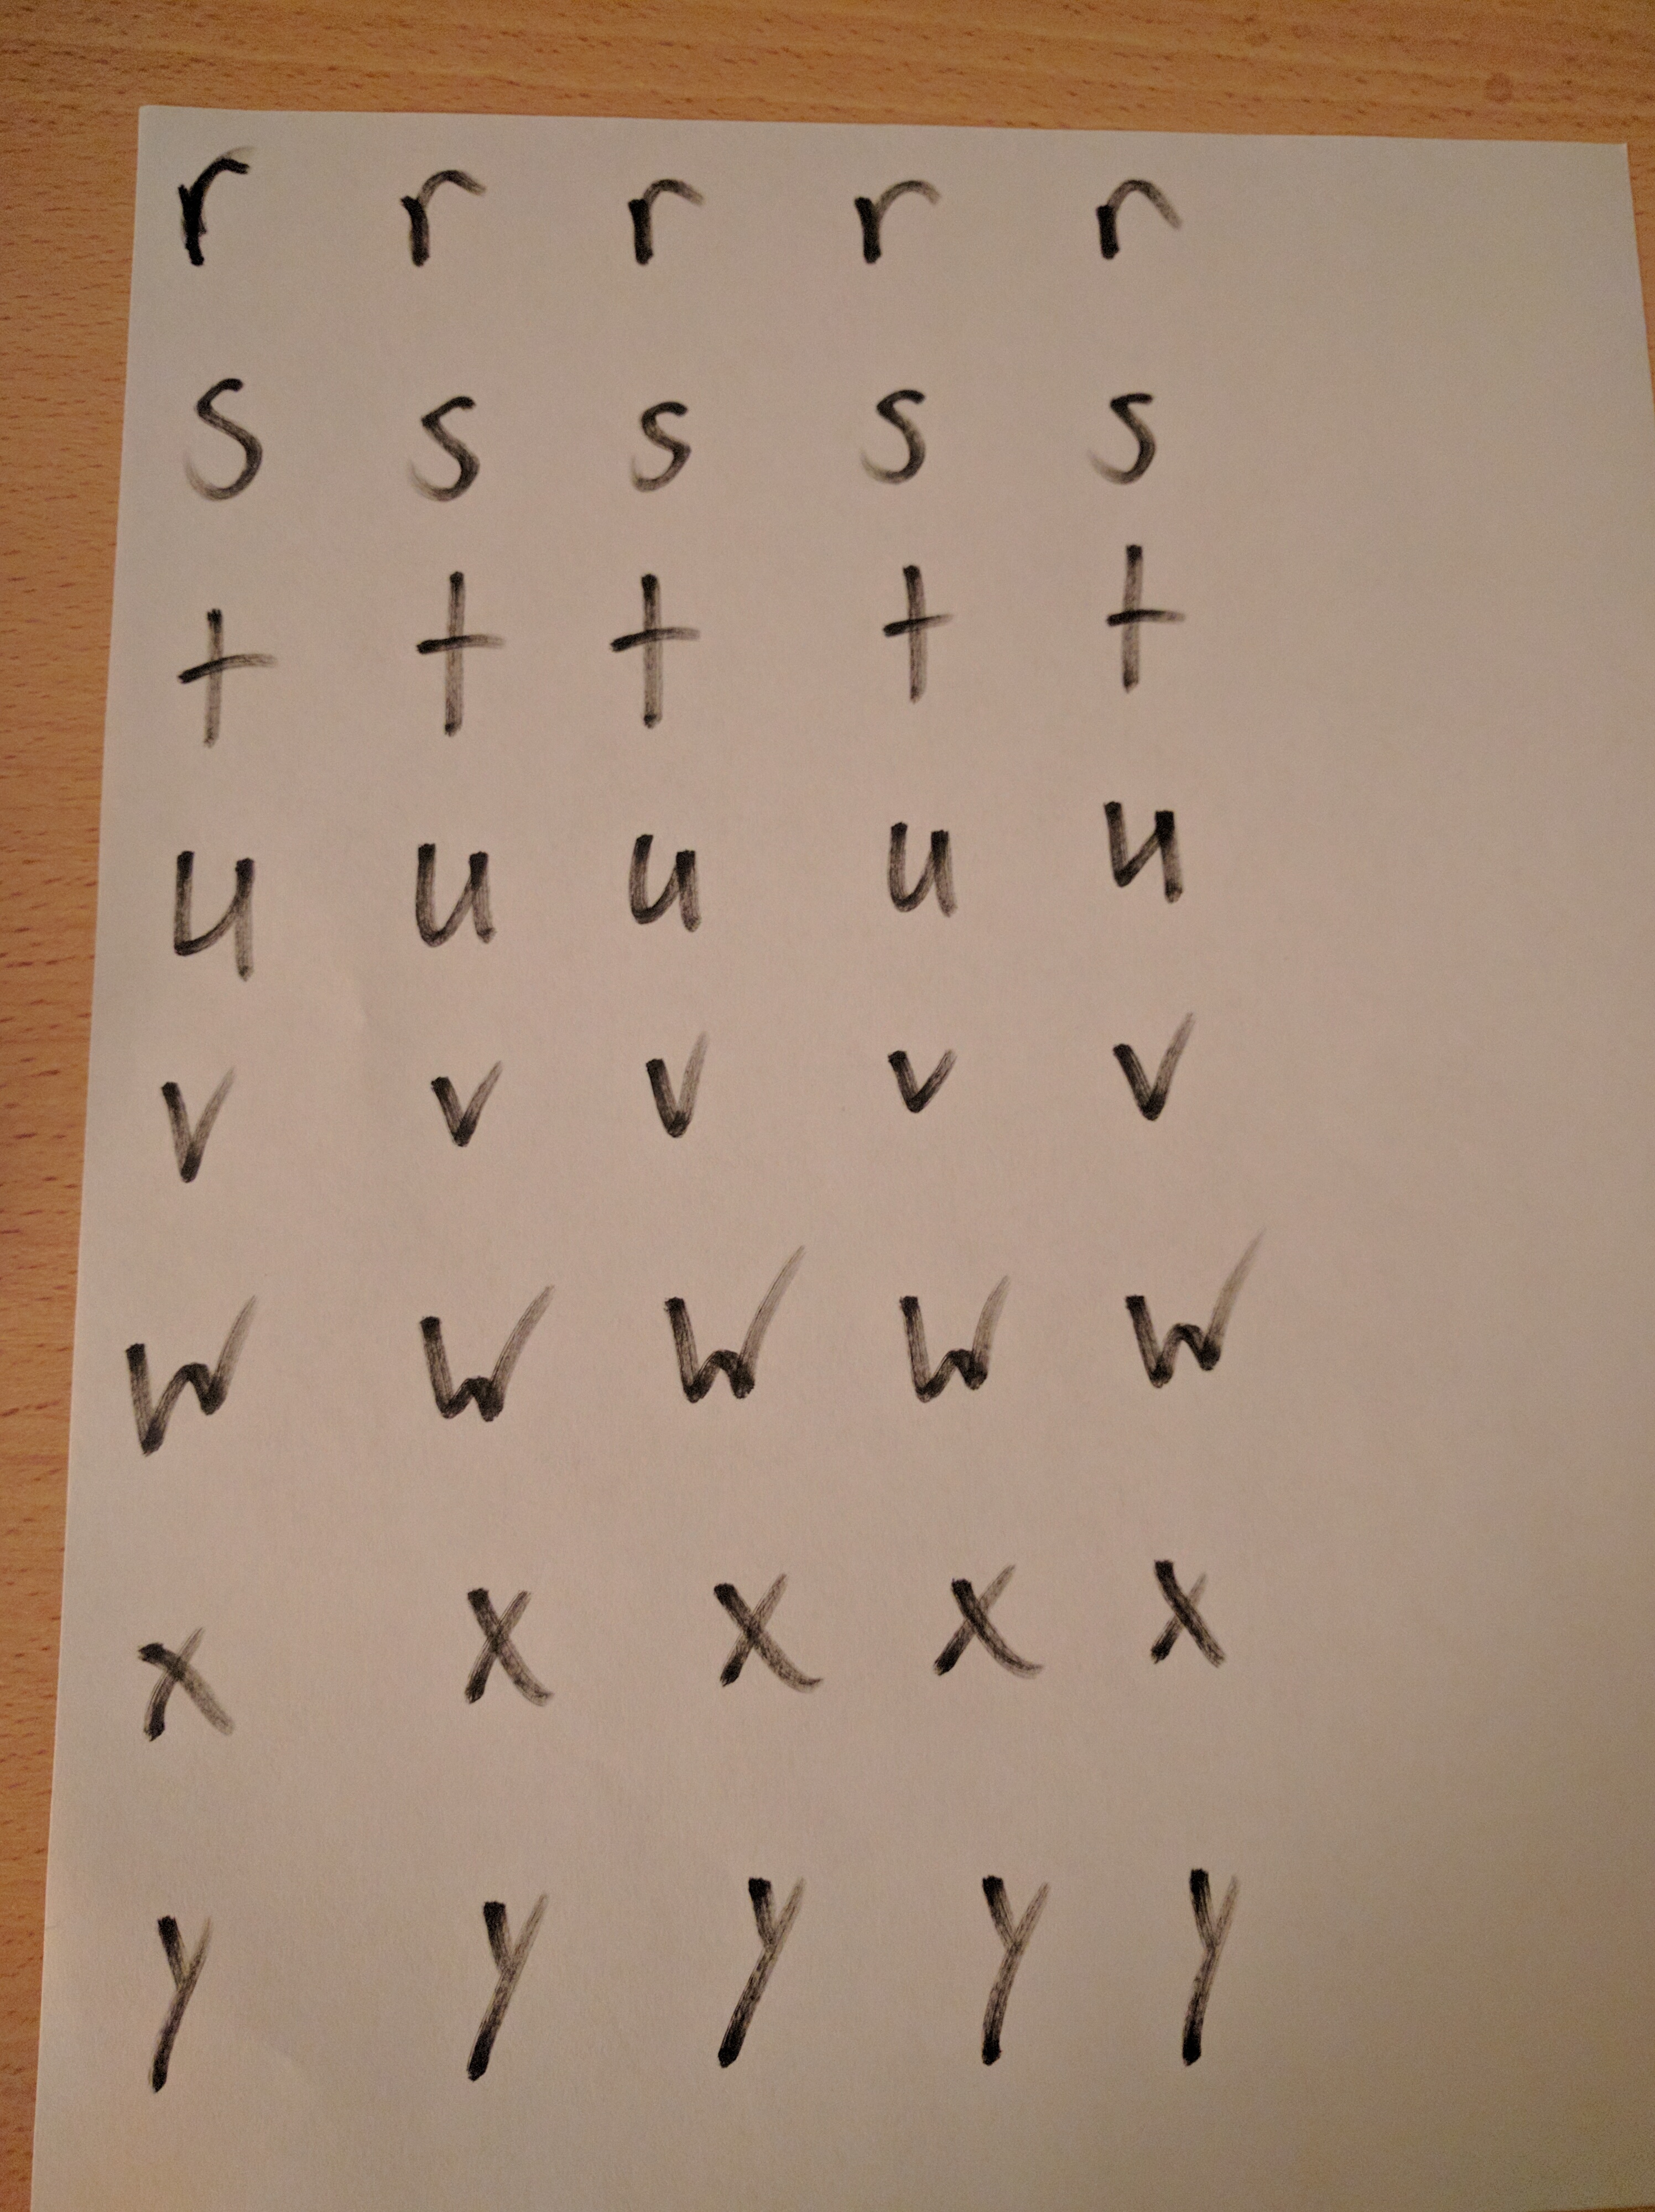 r r r r r
s s s s s
t t t t t
u u u u u
v v v v v
w w w w w
x x x x x
y y y y y